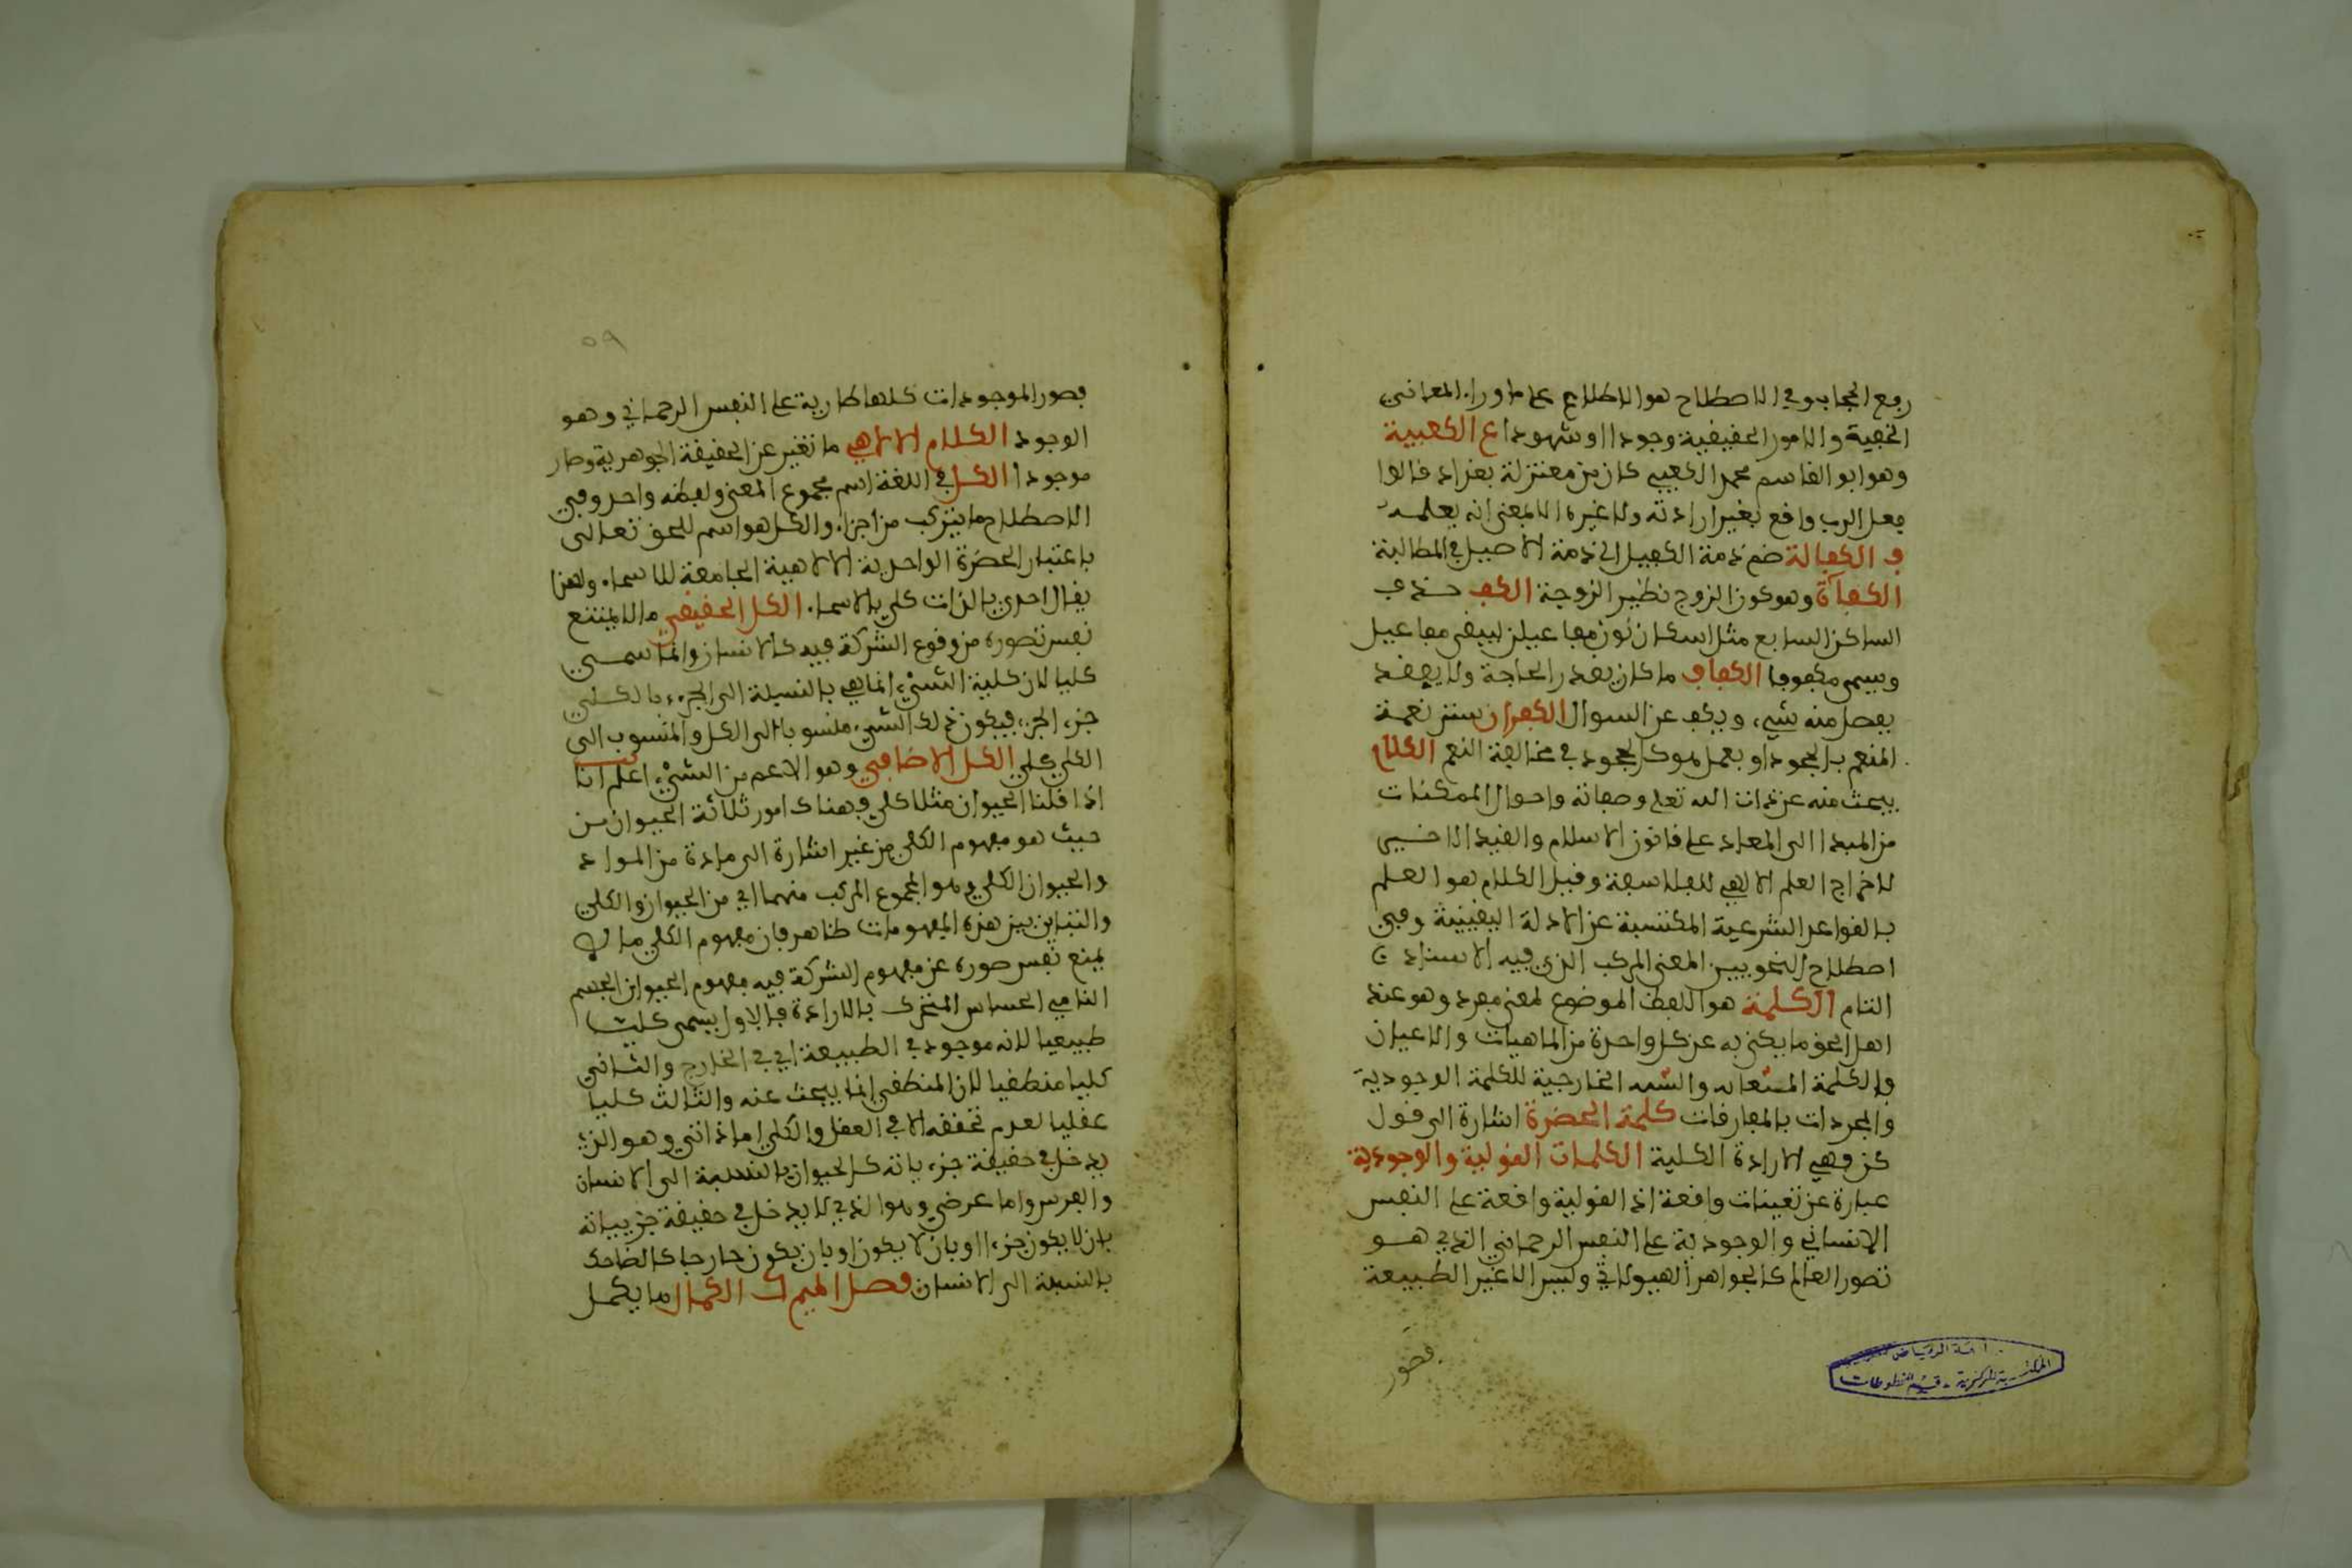 رفع الحجاب وفي الاصطلاح هو الاطلاع على ما وراء المعاني
الخفية والامور الحقيقية وجودا او شهودا ع الكعبية
وهو ابو القاسم محمد الكعبي كان من معتزلة بغداد قالوا
فعل الرب واقع بغير ارادته ولا غيره الا بمعنى انه يعلمه
ف الكفالة ضم ذمة الكفيل الى ذمة الاصيل في المطالبة
الكفاءة وهو كون الزوج نظير الزوجة الكف حذف
الساكن السابع مثل اسكان نون مفاعيلن ليبقى مفاعيل
ويسمى مكفوفا الكفاف ما كان بقدر الحاجة ولا يفضل
منه شيء ويكف عن السوال الكفران ستر نعمة
المنعم بالجحود او بعمل هو كالجحود في مخالفة النعم الكلام
يبحث منه عن ذات الله تعلى وصفاته واحوال الممكنات
من المبدا الى المعاد على قانون الاسلام والقيد الاخير
لاخراج العلم الالاهي للفلاسفة وقيل الكلام هو العلم
بالقواعد الشرعية المكتسبة عن الادلة اليقينية وفي
اصطلاح النحويين المعنى المركب الذي فيه الاسناد
التام الكلمة هو اللفظ الموضوع لمعنى مفرد وهو عند
اهل الحق ما يكنى به عن كل واحدة من الماهيات والاعيان
والكلمة الخارجية للكلمة الوجودية
والمجردات بالمفارقات كلمة الحضرة اشارة الى قول
كن وهي الارادة الكلية الكلمات القولية والوجودية
عبارة عن تعينات واقعة اذ القولية واقعة على النفس
الانساني والوجودية على النفس الرحماني الذي هو
تصور العالم كالجواهر الهيولاني وليس الا غير الطبيعة
فصور
المكتبة المركزية - قسم المخطوطات
٥٩
فصور الموجودات كلها طارية على النفس الرحماني وهو
الوجود الكلام الالاهي ما تغير عن الحقيقة الجوهرية وصار
موجودا الكل في اللغة اسم مجموع المعنى ولفظه واحد وفي
الاصطلاح ما يتركب من اجزاء والكل هو اسم للحق تعالى
باعتبار الحضرة الواحدية الالاهية الجامعة للاسماء ولهذا
يقال احدي بالذات كلي بالاسماء الكل الحقيقي ما لا يمتنع
نفس تصوره من وقوع الشركة فيه كالانسان وانما سمي
كليا لان كلية الشيء انما هي بالنسبة الى الجزء والكلي
جزء الجزء فيكون ذلك الشيء منسوبا الى الكل والمنسوب الى
الكلي كلي الكل الاضافي وهو الاعم من الشيء اعلم انا
اذا قلنا الحيوان مثلا كلي فهناك امور ثلاثة الحيوان من
حيث هو مفهوم الكلي من غير اشارة الى مادة من المواد
والحيوان الكلي وهو المجموع المركب منهما اي من الحيوان والكلي
والتباين بين هذه المفهومات ظاهر فان مفهوم الكلي ما لا
يمنع نفس صوره عن مفهوم الشركة فيه مفهوم الحيوان الجسم
النامي الحساس المتحرك بالارادة فالاول يسمى كليا
طبيعيا لانه موجود في الطبيعة اي في الخارج والثاني
كليا منطقيا لان المنطقي انما يبحث عنه والثالث كليا
عقليا لعدم تحققه الا في العقل والكلي اما ذاتي وهو الذي
يدخل في حقيقة جزءياته كالحيوان بالنسبة الى الانسان
والفرس واما عرضي وهو الذي لا يدخل في حقيقة جزيياته
بان لا يكون جزءا او بان لا يكون او بان يكون خارجا كالضاحك
بالنسبة الى الانسان فصل الميم ك الكمال ما يكمل